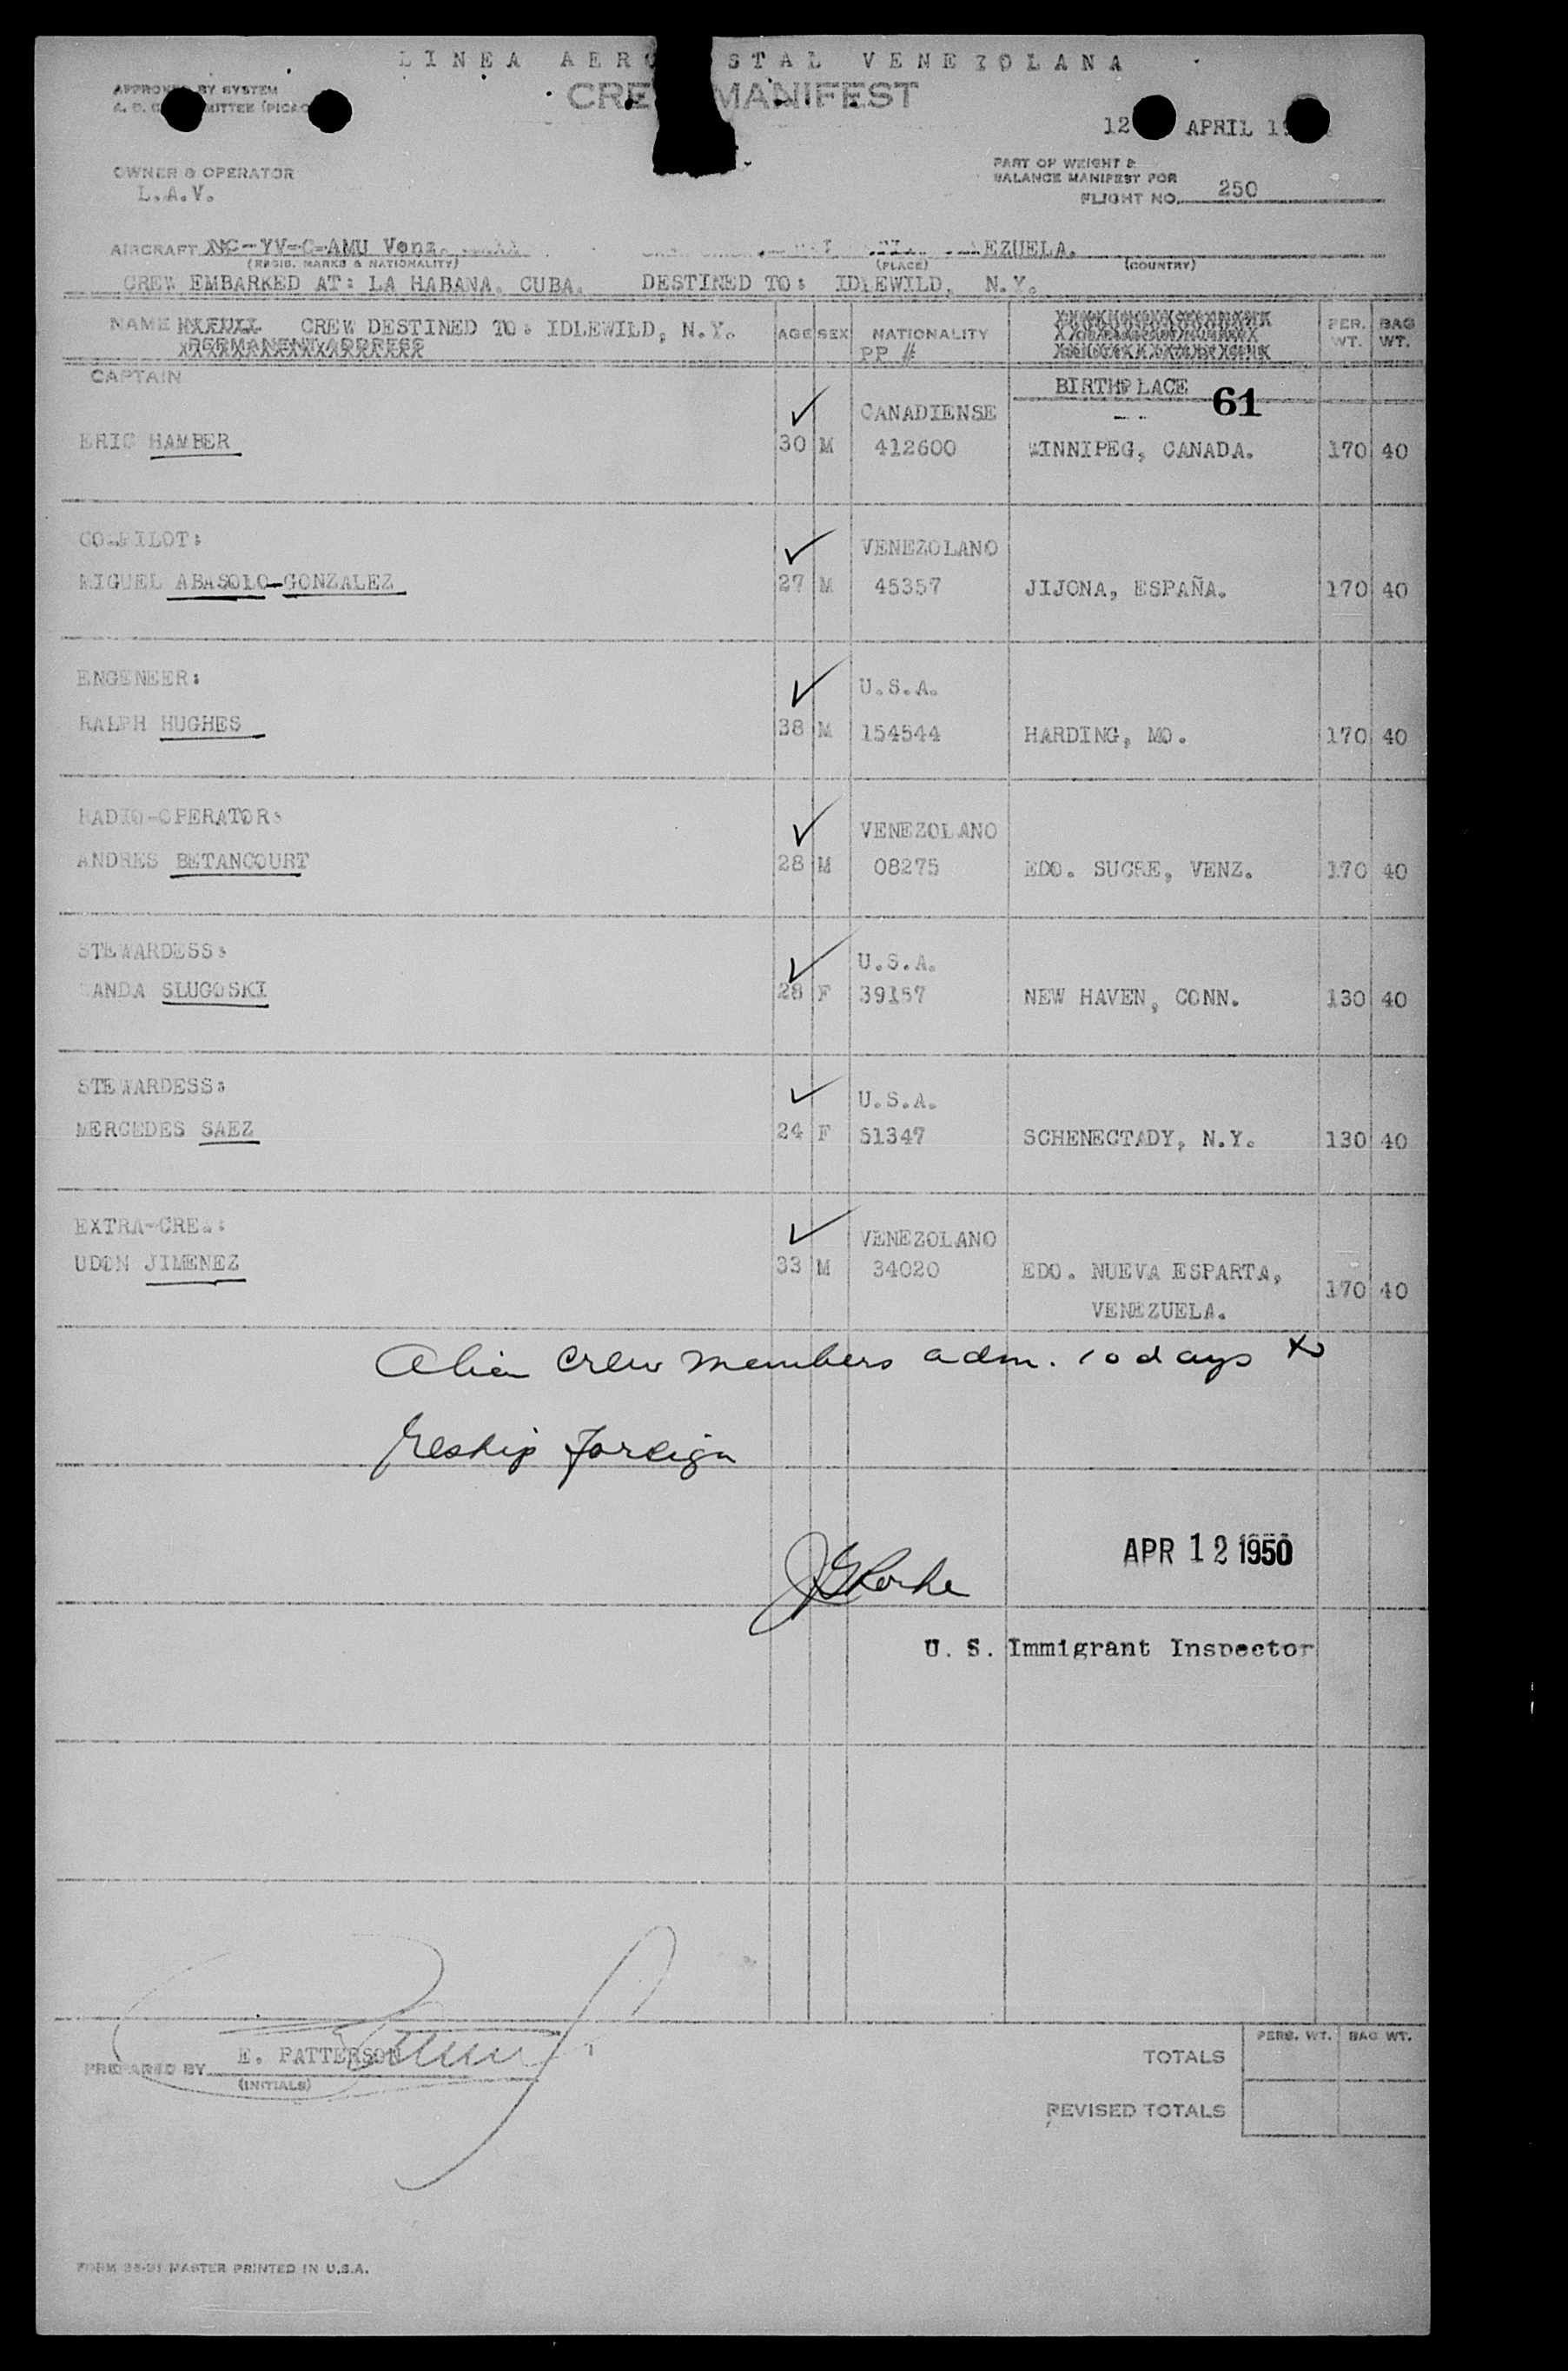 LINEA AERO STAL VENEZOLANA
CRE MANIFEST
APPROVED BY SYSTEM
12 APRIL
OWNER & OPERATOR
L.A.V.
PART OF WEIGHT &
BALANCE MANIFEST FOR
FLIGHT NO. 250
AIRCRAFT NC-YV-C-AMU Venz. EZUELA.
(REGIS. MARKS & NATIONALITY) (PLACE) (COUNTRY)
CREW EMBARKED AT: LA HABANA, CUBA. DESTINED TO: IDLEWILD, N.Y.
NAME IN FULL CREW DESTINED TO: IDLEWILD, N.Y. AGE SEX NATIONALITY PER. WT. BAG WT.
PERMANENT ADDRESS PP #
CAPTAIN BIRTHPLACE 61
CANADIENSE
ERIC HAMBER 30 M 412600 WINNIPEG, CANADA. 170 40
CO-PILOT: VENEZOLANO
MIGUEL ABASOLO-GONZALEZ 27 M 45357 JIJONA, ESPAÑA. 170 40
ENGENEER: U.S.A.
RALPH HUGHES 38 M 154544 HARDING, MO. 170 40
RADIO-OPERATOR: VENEZOLANO
ANDRES BETANCOURT 28 M 08275 EDO. SUCRE, VENZ. 170 40
STEWARDESS: U.S.A.
WANDA SLUGOSKI 28 F 39157 NEW HAVEN, CONN. 130 40
STEWARDESS: U.S.A.
MERCEDES SAEZ 24 F 51347 SCHENECTADY, N.Y. 130 40
EXTRA-CREW: VENEZOLANO
UDON JIMENEZ 33 M 34020 EDO. NUEVA ESPARTA, 170 40
VENEZUELA.
Alien Crew Members adm. 10 days to
Reship foreign
APR 12 1950
U. S. Immigrant Inspector
PERS. WT. BAG WT.
PREPARED BY E. PATTERSON TOTALS
(INITIALS)
REVISED TOTALS
MASTER PRINTED IN U.S.A.